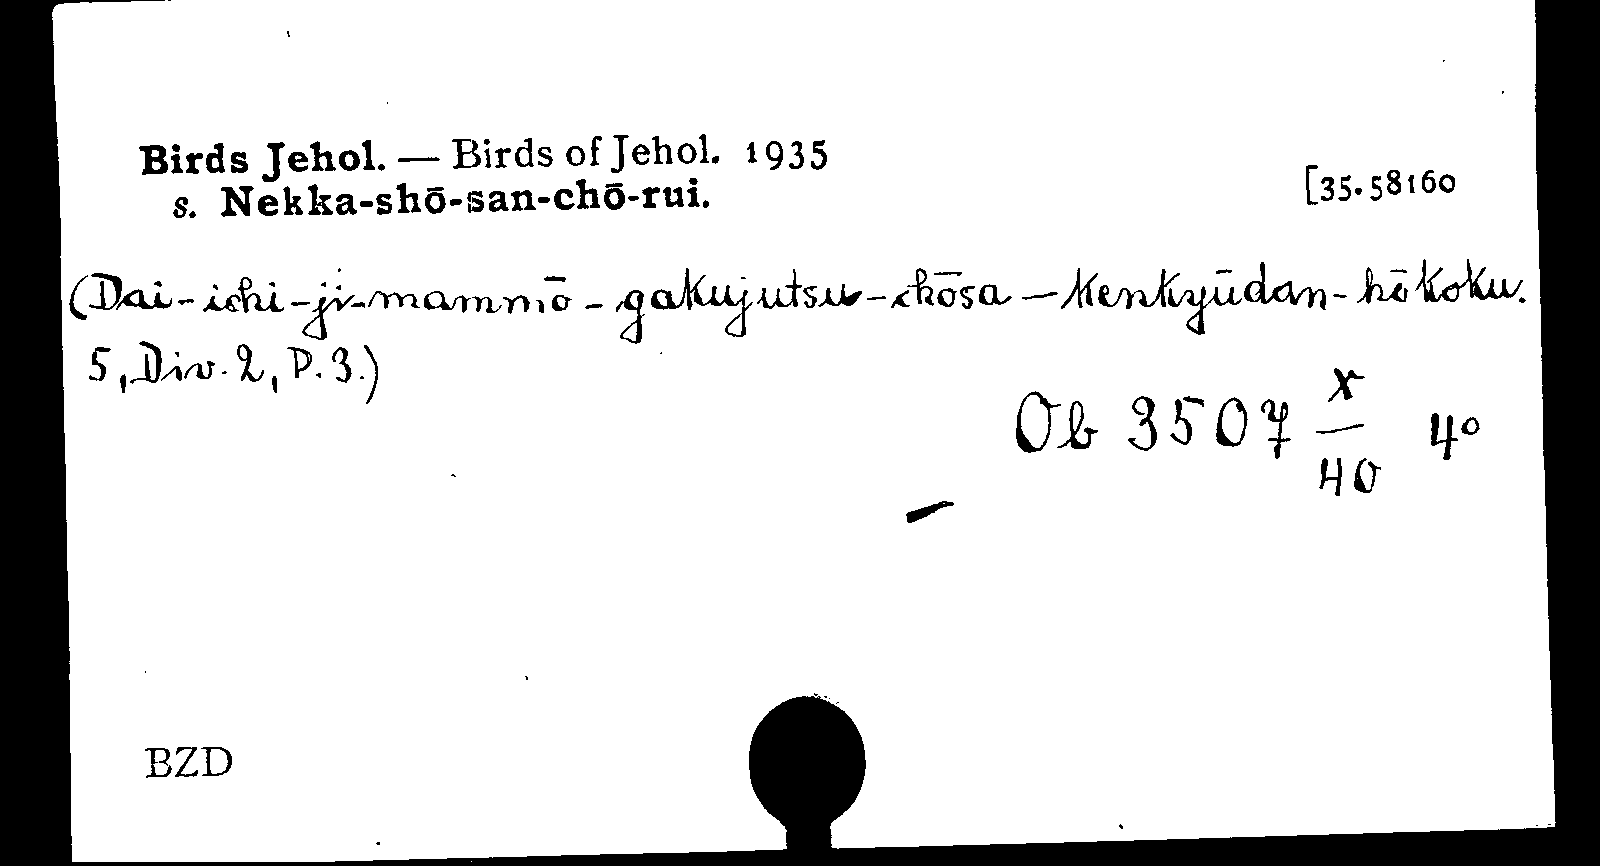 Birds Jehol. — Birds of Jehol. 1935
s. Nekka-shō-san-chō-rui.
[35.58160
(Dai-ichi-ji-mammō-gakujutsu-chōsa-kenkyūdan-hōkoku.
5, Div. 2, P. 3.)
Ob 3507 x/40 4°
BZD